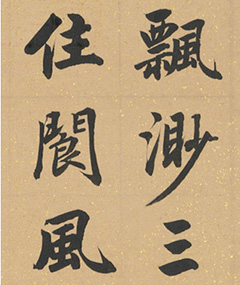 飄渺三
住閬風